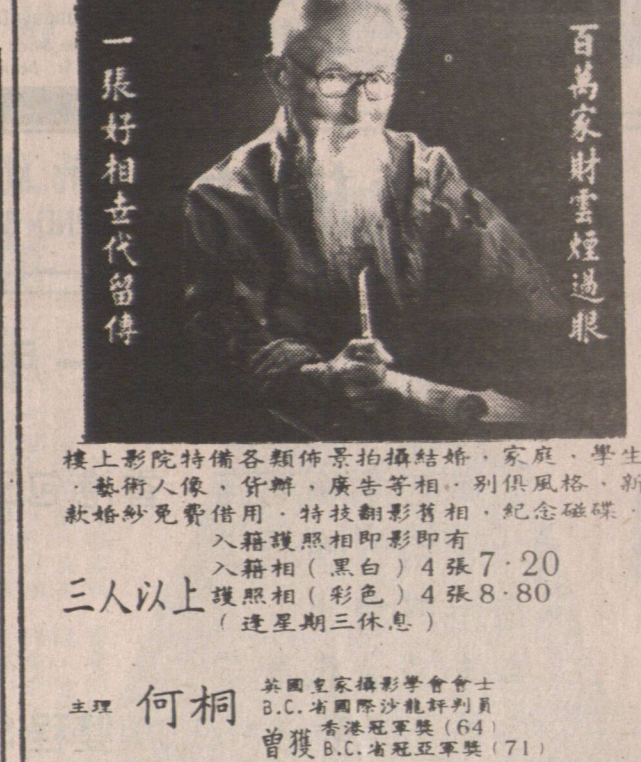 百萬家財雲煙過眼
一張好相世代留傳
樓上影院特備各類佈景拍攝結婚．家庭．學生
．藝術人像．貨辦．廣告等相．別俱風格．新
款婚紗免費借用．特技翻影舊相．紀念磁碟．
入籍護照相即影即有
三人以上
入籍相(黑白)4張7·20
護照相(彩色)4張8·80
(逢星期三休息)
主理 何桐
英國皇家攝影學會會士
B.C.省國際沙龍評判員
曾獲
香港冠軍獎(64)
B.C.省冠亞軍獎(71)